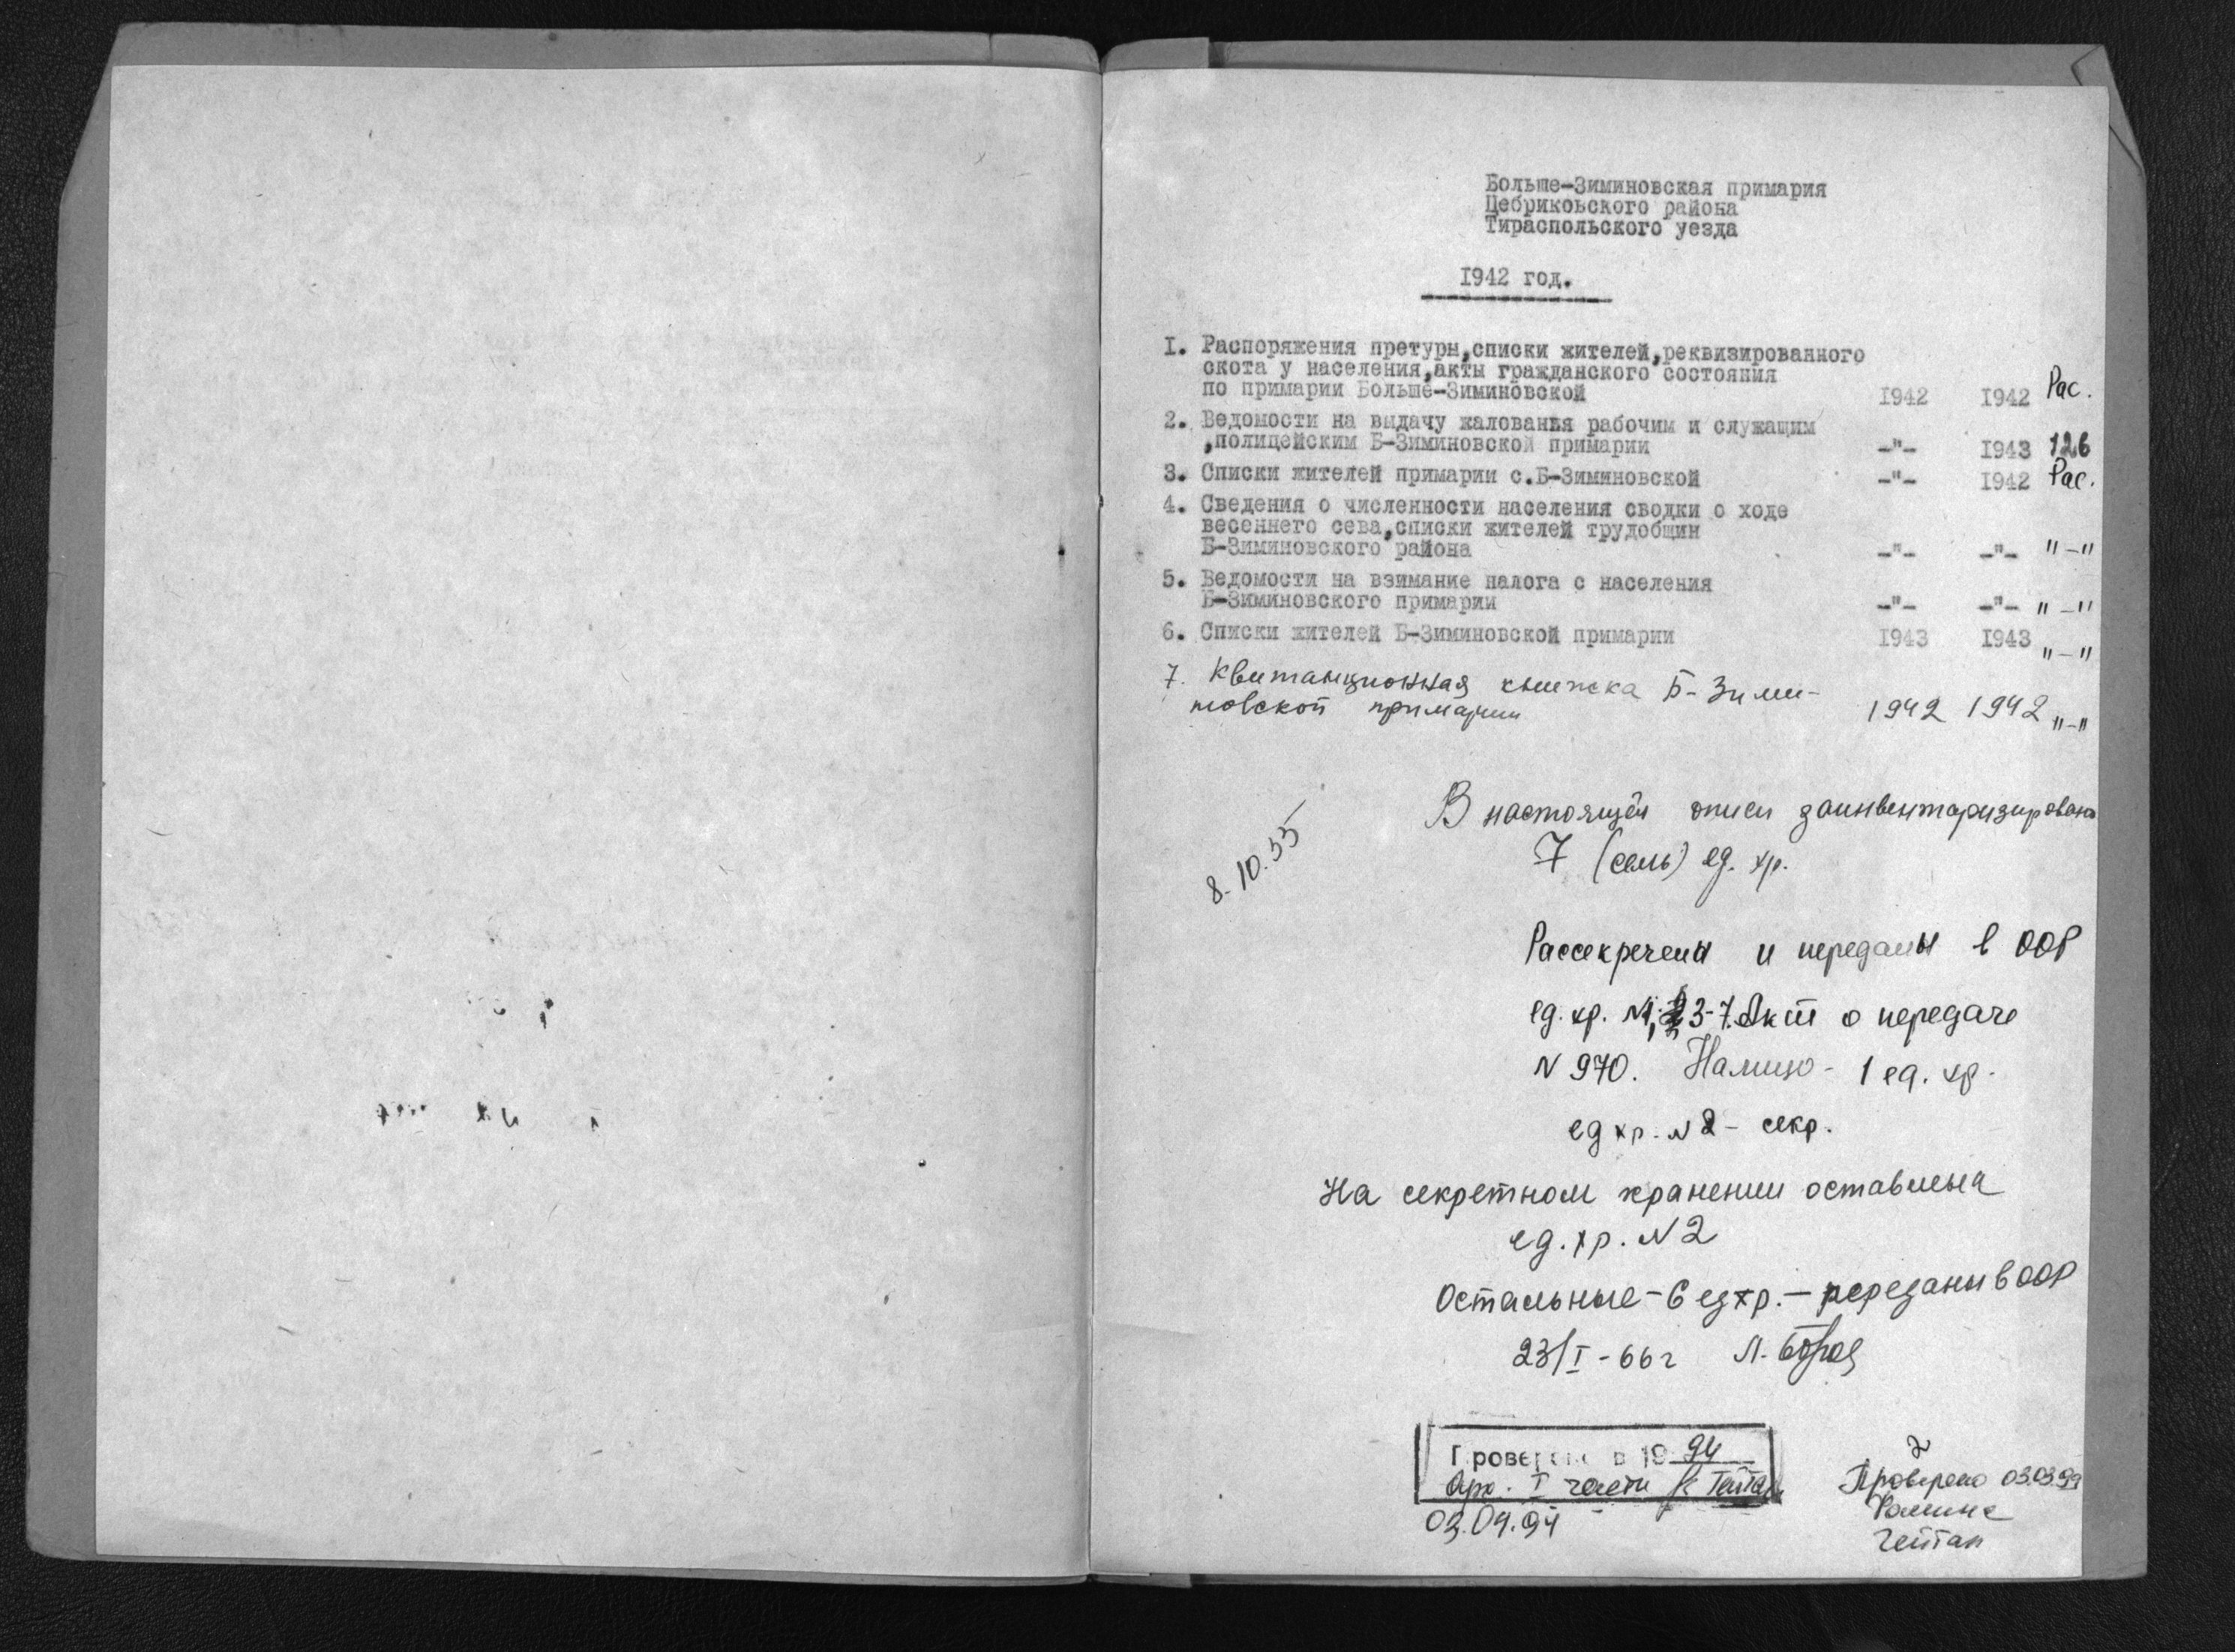 Больше-Зиминовская примария
Цебриковского района
Тираспольского уезда
1942 год.
1. Распоряжения претуры,списки жителей,реквизированного
скота у населения,акты гражданского состояния
по примарии Больше-Зиминовской 1942 1942 Рас.
2. Ведомости на выдачу жалованья рабочим и служащим
,полицейским Б-Зиминовской примарии -"- 1943 126
3. Списки жителей примарии с.Б-Зиминовской -"- 1942 Рас.
4. Сведения о численности населения сводки о ходе
весеннего сева,списки жителей трудобщин
Б-Зиминовского района -"- -"- "-"
5. Ведомости на взимание налога с населения
Б-Зиминовского примарии -"- -"- "-"
6. Списки жителей Б-Зиминовской примарии 1943 1943 "-"
7. Квитанционная книжка Б-Зими-
новской примарии 1942 1942 "-"
В настоящей описи заинвентаризировано
7 (семь) ед. хр.
8.10.55
Рассекречены и переданы в ООР
ед. хр. №1, 3-7. Акт о передаче
N 970. Налицо - 1 ед. хр.
ед хр. N 2 - секр.
На секретном хранении оставлена
ед. хр. N 2
Остальные - 6 ед хр. - переданы в ООР
23/I - 66 г Л.
Проверено в 1994
Арх. I части
03.04.94
Проверено 03.03.99